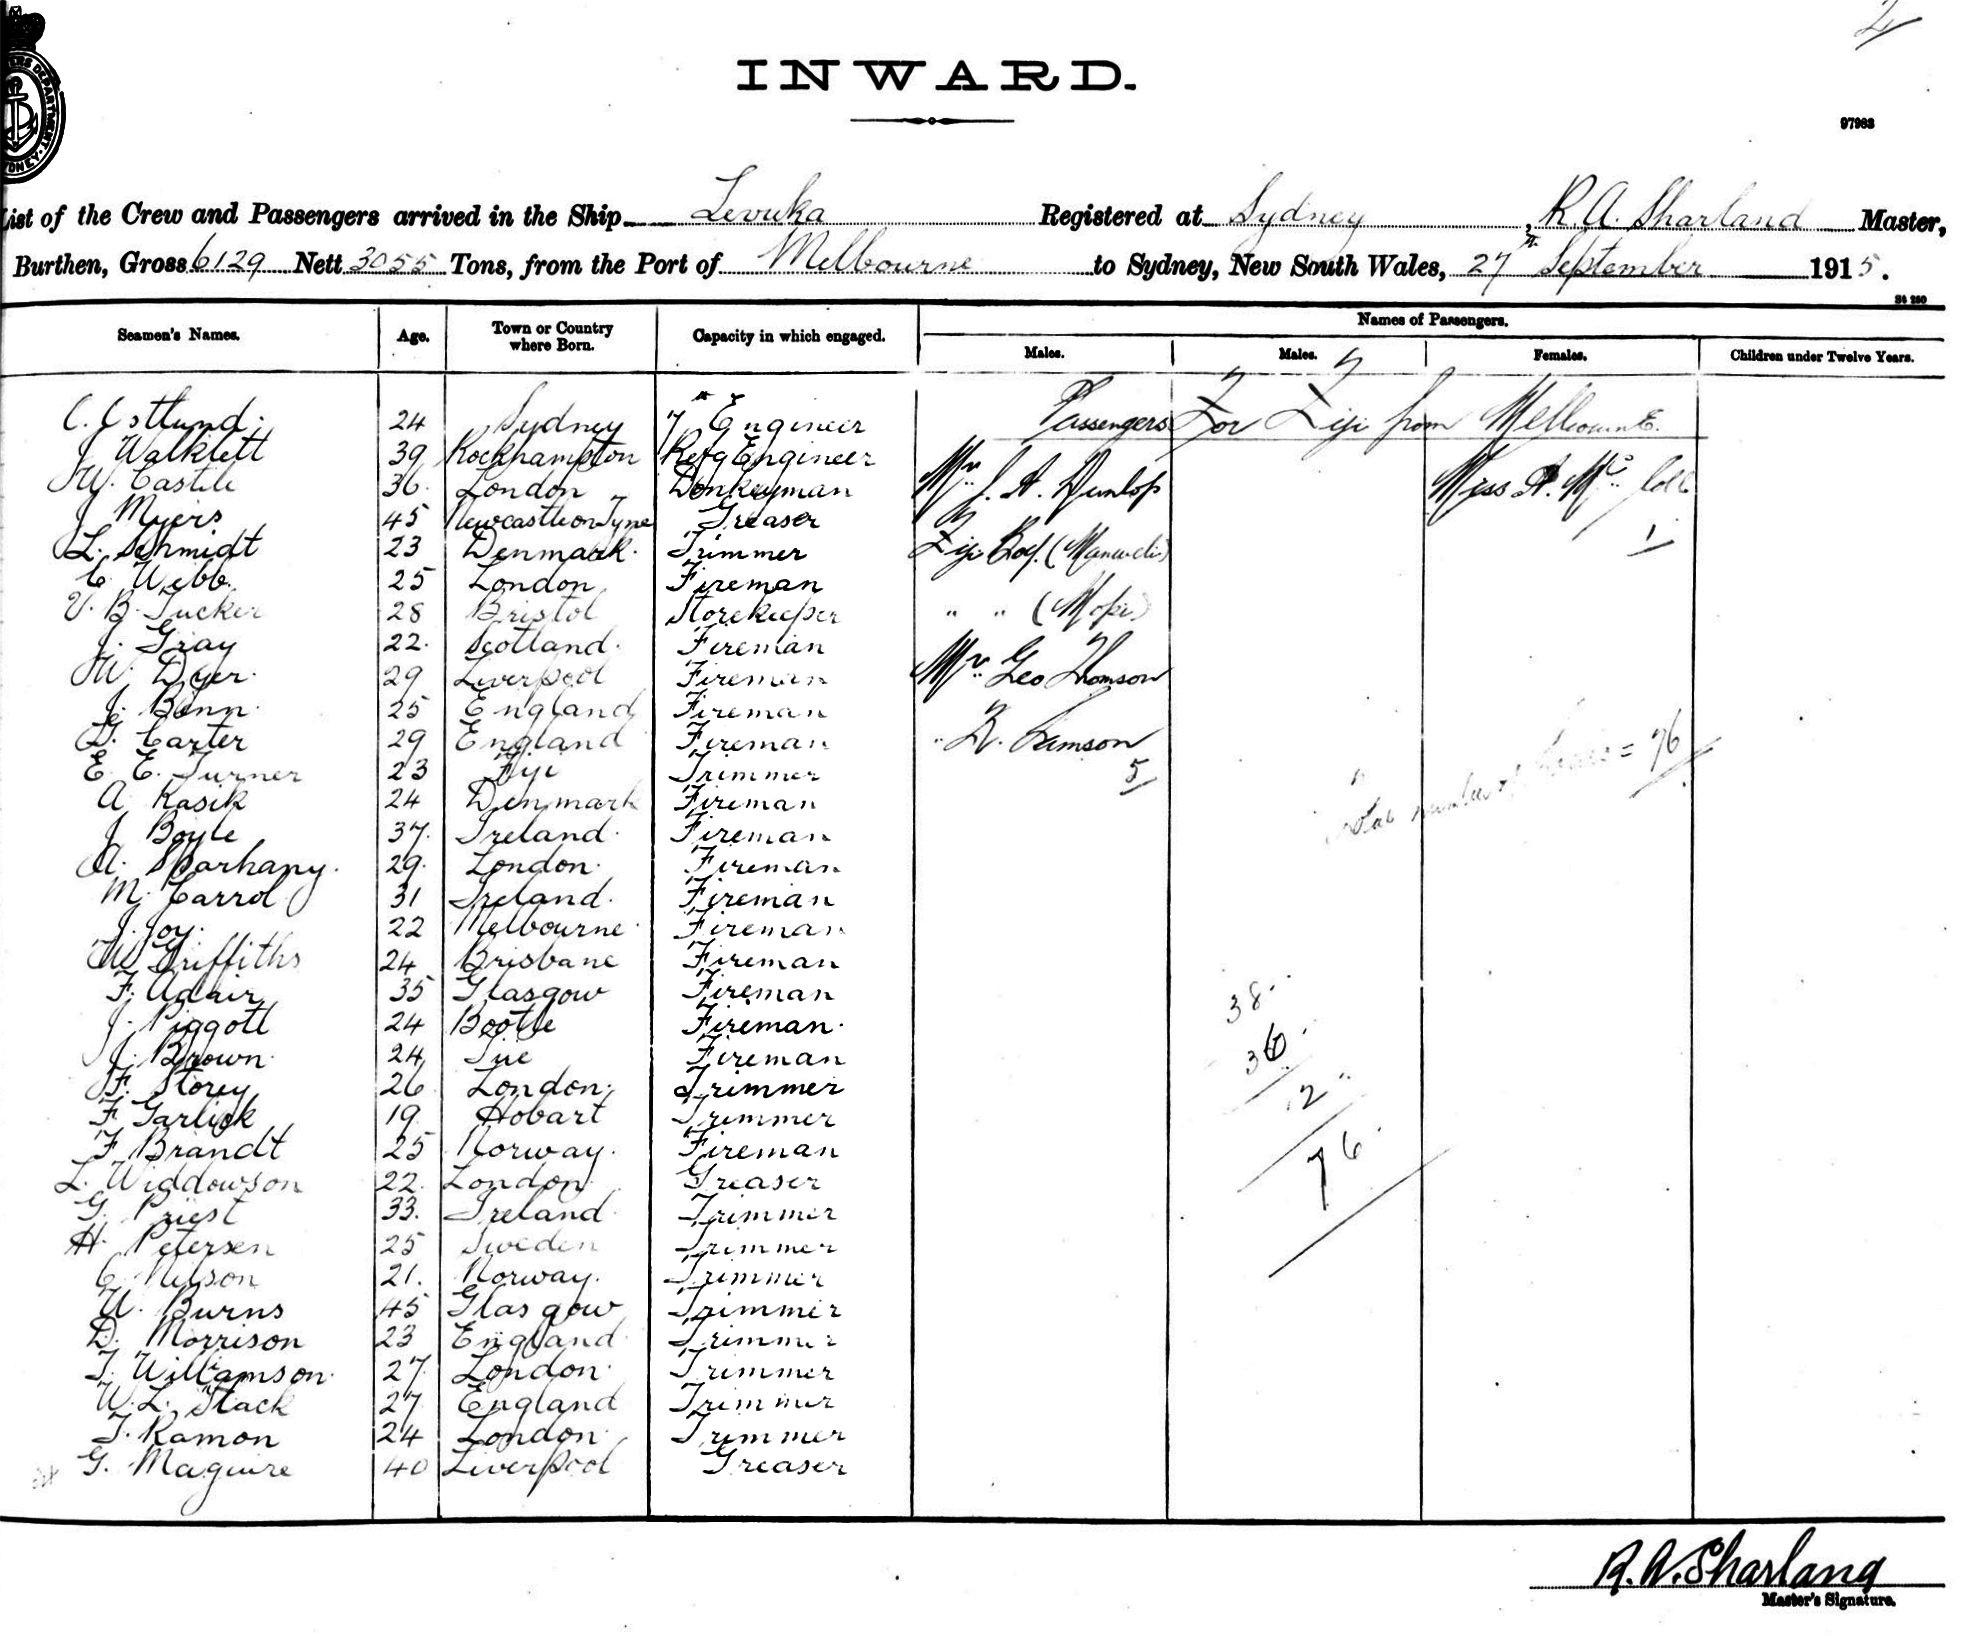 2
INWARD.
97983
List of the Crew and Passengers arrived in the Ship Levuka Registered at Sydney, R. A. Sharland Master,
Burthen, Gross 6129 Nett 3055 Tons, from the Port of Melbourne to Sydney, New South Wales, 27th September 1915.
St 250
Seamen's Names. Age. Town or Country where Born. Capacity in which engaged. Names of Passengers.
Males. Males. Females. Children under Twelve Years.
Passengers For Fiji from Melbourne.
C. Ostlund. 24 Sydney 7th Engineer
J Walklett 39 Rockhampton Refg Engineer
W. Castle 36. London Donkeyman Mr. J. A. Dunlop Miss A. Mc
J Myers 45 Newcastle on Tyne Greaser
L. Schmidt 23 Denmark. Trimmer Fiji Boy. 1
C. Webb. 25 London Fireman
V. B. Tucker 28 Bristol Storekeeper " " (Mosi)
J. Gray 22. Scotland. Fireman
W. Dyer. 29 Liverpool Fireman Mr. Geo Thomson
J. Benn. 25 England Fireman
G. Carter 29 England Fireman
E. E. Turner 23 Fiji Trimmer 5
A Kasik 24 Denmark Fireman
J Boyle 37. Ireland. Fireman
A. Sparhany. 29. London. Fireman
M. Carrol 31 Ireland. Fireman
J. Joy. 22 Melbourne. Fireman
W Griffiths 24 Brisbane Fireman
F. Adair 35 Glasgow Fireman
J. Piggott 24 Bootle Fireman.
J. Brown. 24 Fireman
F. Storey 26 London. Trimmer
F Garlick 19 Hobart Trimmer
F Brandt 25 Norway. Fireman
L. Widdowson 22. London. Greaser
G. Priest 33. Ireland. Trimmer
H. Petersen 25 Sweden Trimmer
C Nelson 21. Norway. Trimmer
W. Burns 45 Glasgow Trimmer
D. Morrison 23 England. Trimmer
T. Williamson. 27. London. Trimmer
W. L. Stack 27 England Trimmer
T. Ramon 24 London. Trimmer
G. Maguire 40 Liverpool Greaser
Total number of = 76
38.
36.
2
76
R. A. Sharland
Master's Signature.